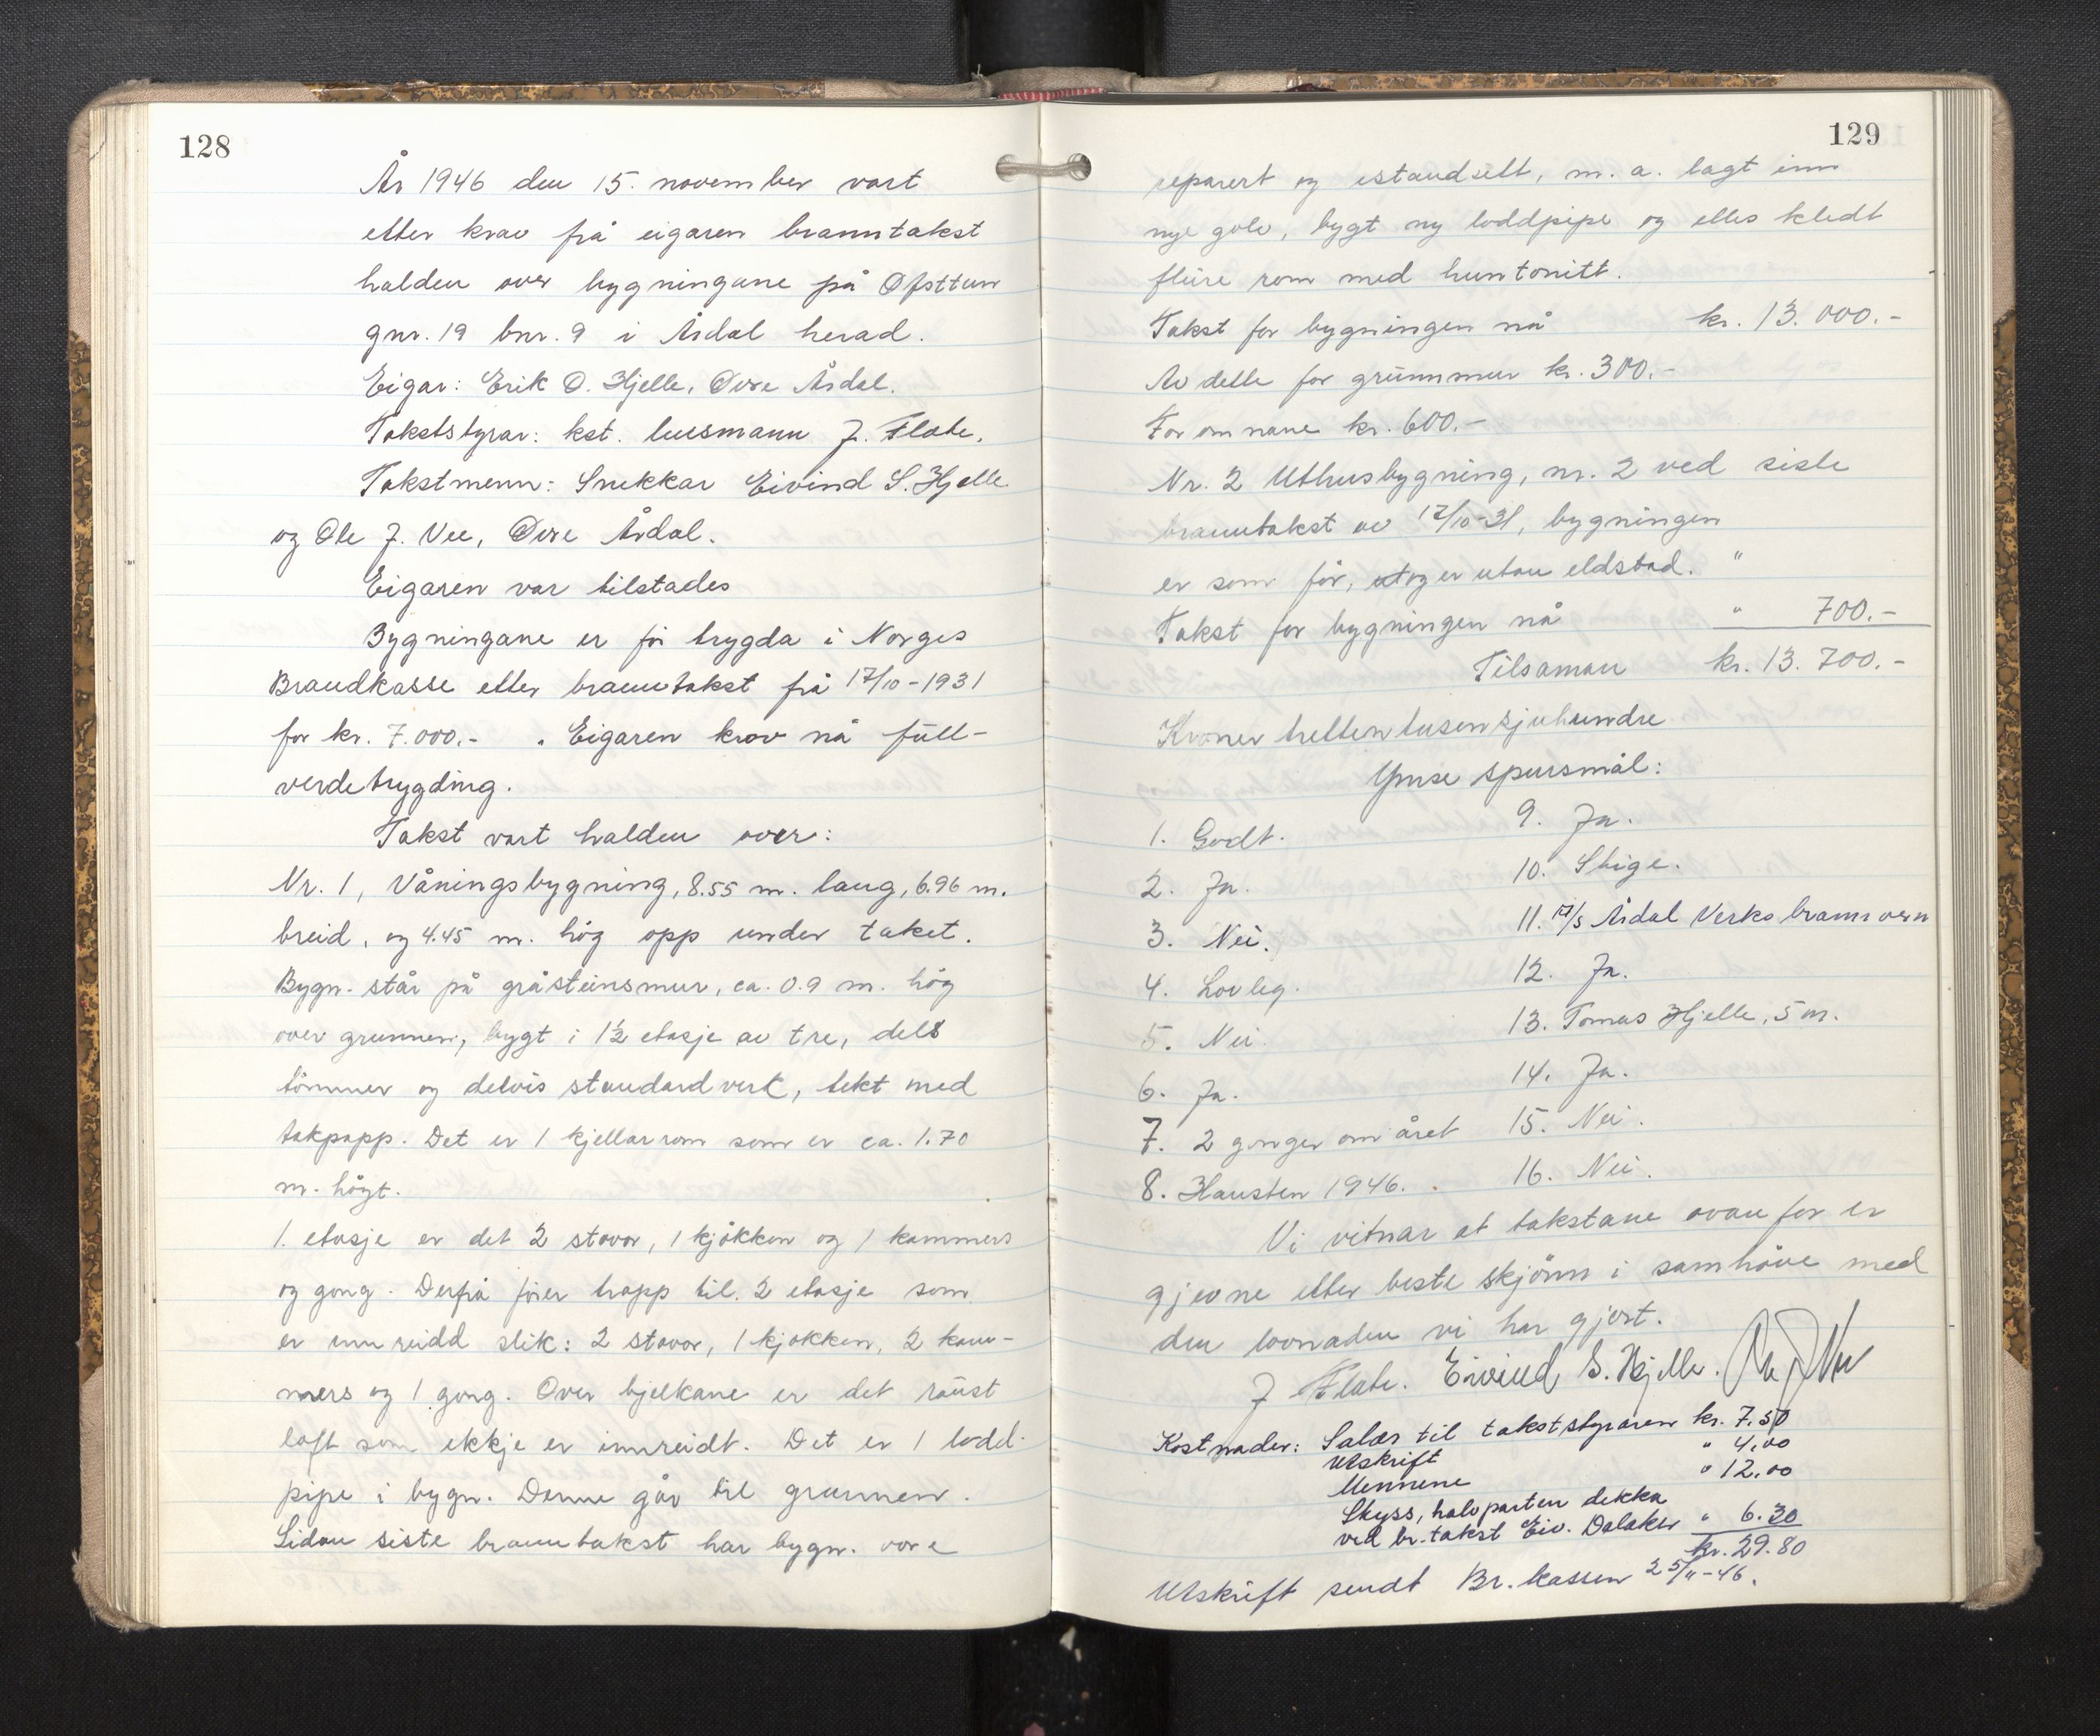 128
År 1946 den 15. november vart
etter krav frå eigaren branntakst
halden over bygningane på Ofsttun
gnr. 19 bnr. 9 i Årdal herad.
Eigar: Erik O. Hjelle, Øvre Årdal.
Takststyrar: kst. lensmann J. Flate.
Takstmenn: Snekkar Eivind S. Hjelle
og Ole J. Vee, Øvre Årdal.
Eigaren var tilstades
Bygningane er før trygda i Norges
Brandkasse etter branntakst frå 17/10-1931
for kr. 7.000.- . Eigaren krov nå full-
verdetrygding.
Takst vart halden over:
Nr. 1, Våningsbygning, 8.55 m. lang, 6.96 m.
breid, og 4.45 m. høg opp under taket.
Bygn. står på gråsteinsmur, ca. 0.9 m. høg
over grunnen, bygt i 1½ etasje av tre, dels
tømmer og delvis standardverk, tekt med
takpapp. Det er 1 kjellarrom som er ca. 1.70
m. høgt.
1. etasje er det 2 stovor, 1 kjøkken og 1 kammers
og gong. Derfrå fører trapp til 2 etasje som
er innreidd slik: 2 stovor, 1 kjøkken, 2 kam-
mers og 1 gong. Over bjelkane er det røust
loft som ekkje er innreidt. Det er 1 lodd-
pipe i bygn. Denne går til grunnen.
Sidan siste branntakst har bygn. vore
129
reparert og istandsett, m. a. lagt inn
nye golv, bygt ny loddpipe og elles kledt
fleire rom med huntonitt.
Takst for bygningen nå kr. 13.000.-
Av dette for grunnmur kr. 300.-
For omnane kr. 600.-
Nr. 2 Uthusbygning, nr. 2 ved siste
branntakst av 17/10-31, bygningen
er som før, og er utan eldstad. "
Takst for bygningen nå " 700.-
Tilsaman kr. 13.700.-
Kroner trettentusensjuhundre
Ymse spursmål:
1. Godt. 9. Ja.
2. Ja. 10. Stige.
3. Nei. 11. Årdal Verks brannvern
4. Lovleg. 12. Ja.
5. Nei. 13. Tomas Hjelle, 5 m.
6. Ja. 14. Ja.
7. 2 gonger om året 15. Nei.
8. Hausten 1946. 16. Nei.
Vi vitnar at takstane ovanfor er
gjevne etter beste skjønn i samhøve med
den lovnaden vi har gjort.
J Flate. Eivind S. Hjelle. Ole J Vee
Kostnader: Salær til takststyraren kr. 7.50
Utskrift " 4,00
Mennene " 12.00
Skyss, halvparten dekka
ved br.takst Eiv. Dalaker " 6.30
kr. 29.80
Utskrift sendt Br.kassen 25/11-46.